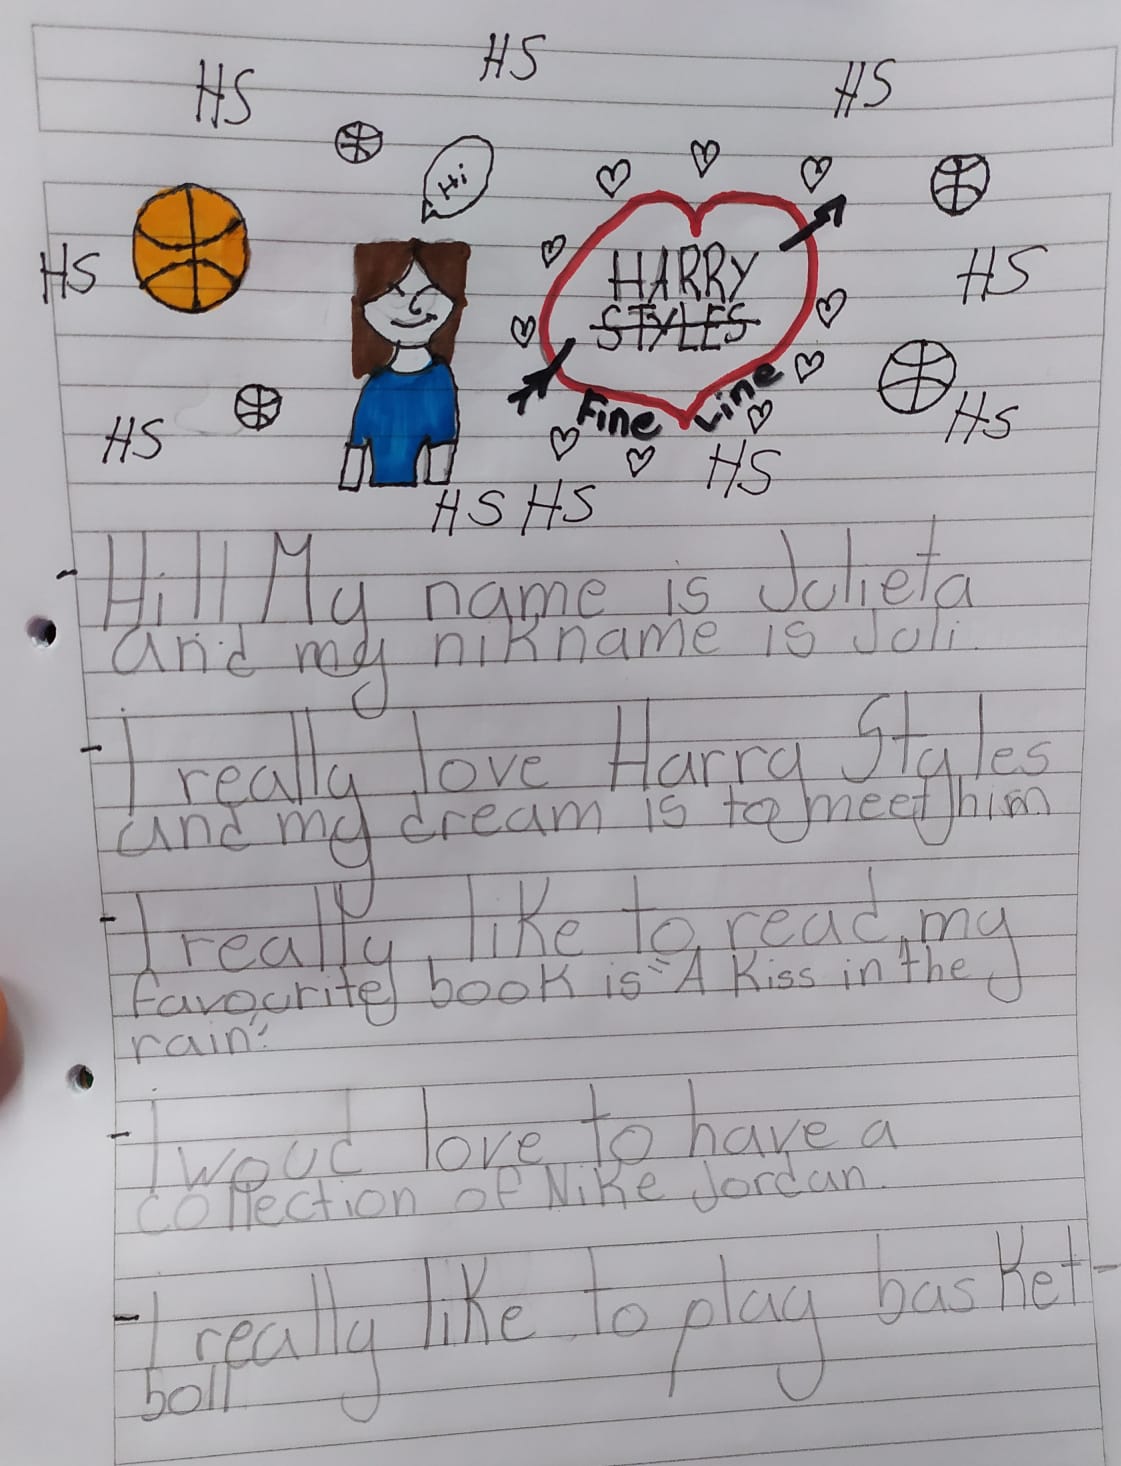 HS
HS
HS
Hi
HS
HARRY
STYLES
HS
Fine Line
HS
HS
HS
HS HS
- Hi!! My name is Julieta
and my nikname is Juli.
- I really love Harry Styles
and my dream is to meet him
- I really like to read, my
favourite book is "A Kiss in the
rain".
- I woud love to have a
collection of Nike Jordan.
- I really like to play basket-
boll